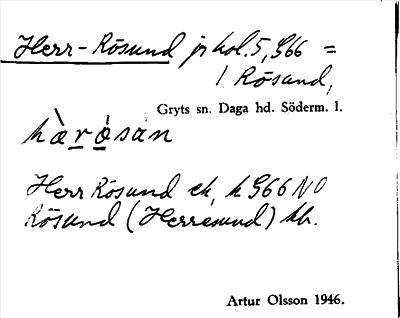 Herr-Rösund jfr kol. 5, G66 =
1 Rösund,
Gryts sn. Daga hd. Söderm. l.
hæ̀rǿsan
Herr Rösund ek, h G66 NO
Rösund (Herresund) hb.
Artur Olsson 1946.